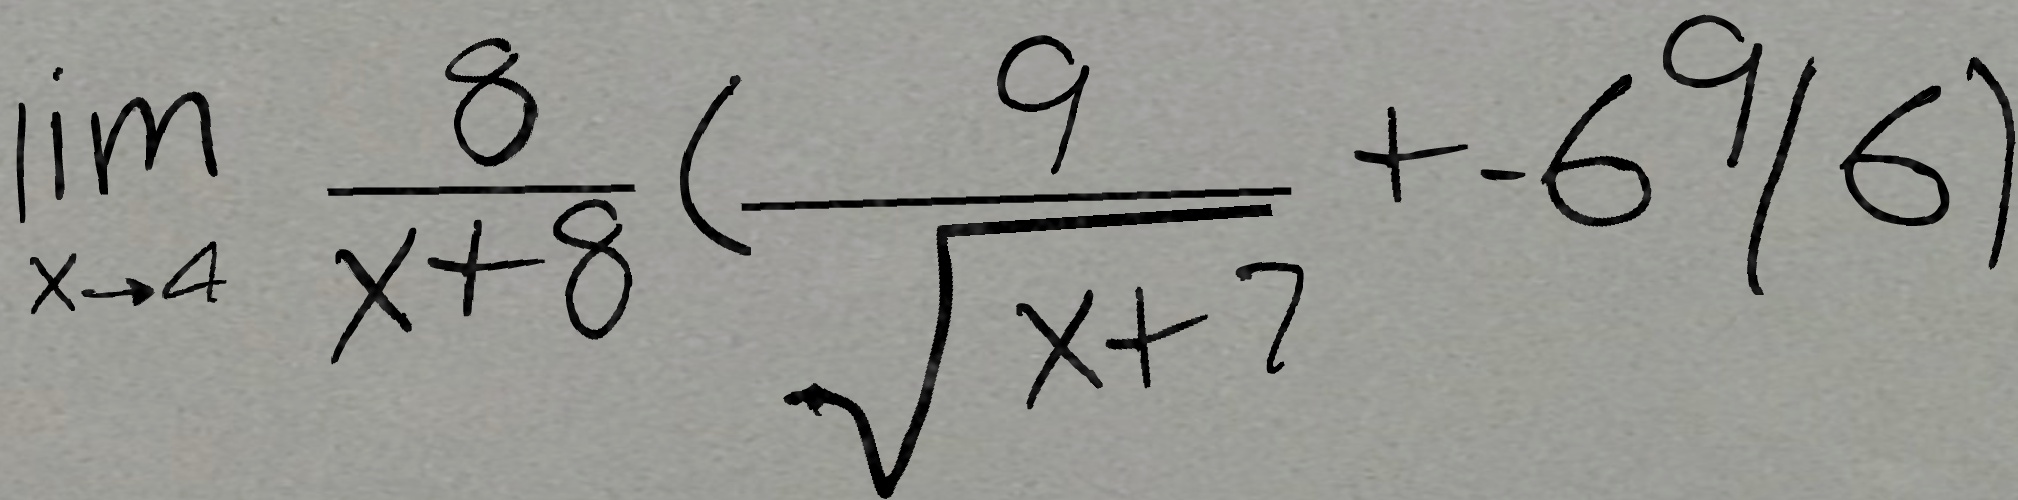 \lim_{x \to 4} \frac{8}{x+8} \left( \frac{9}{\sqrt{x+7}} + -6^9/6 \right)